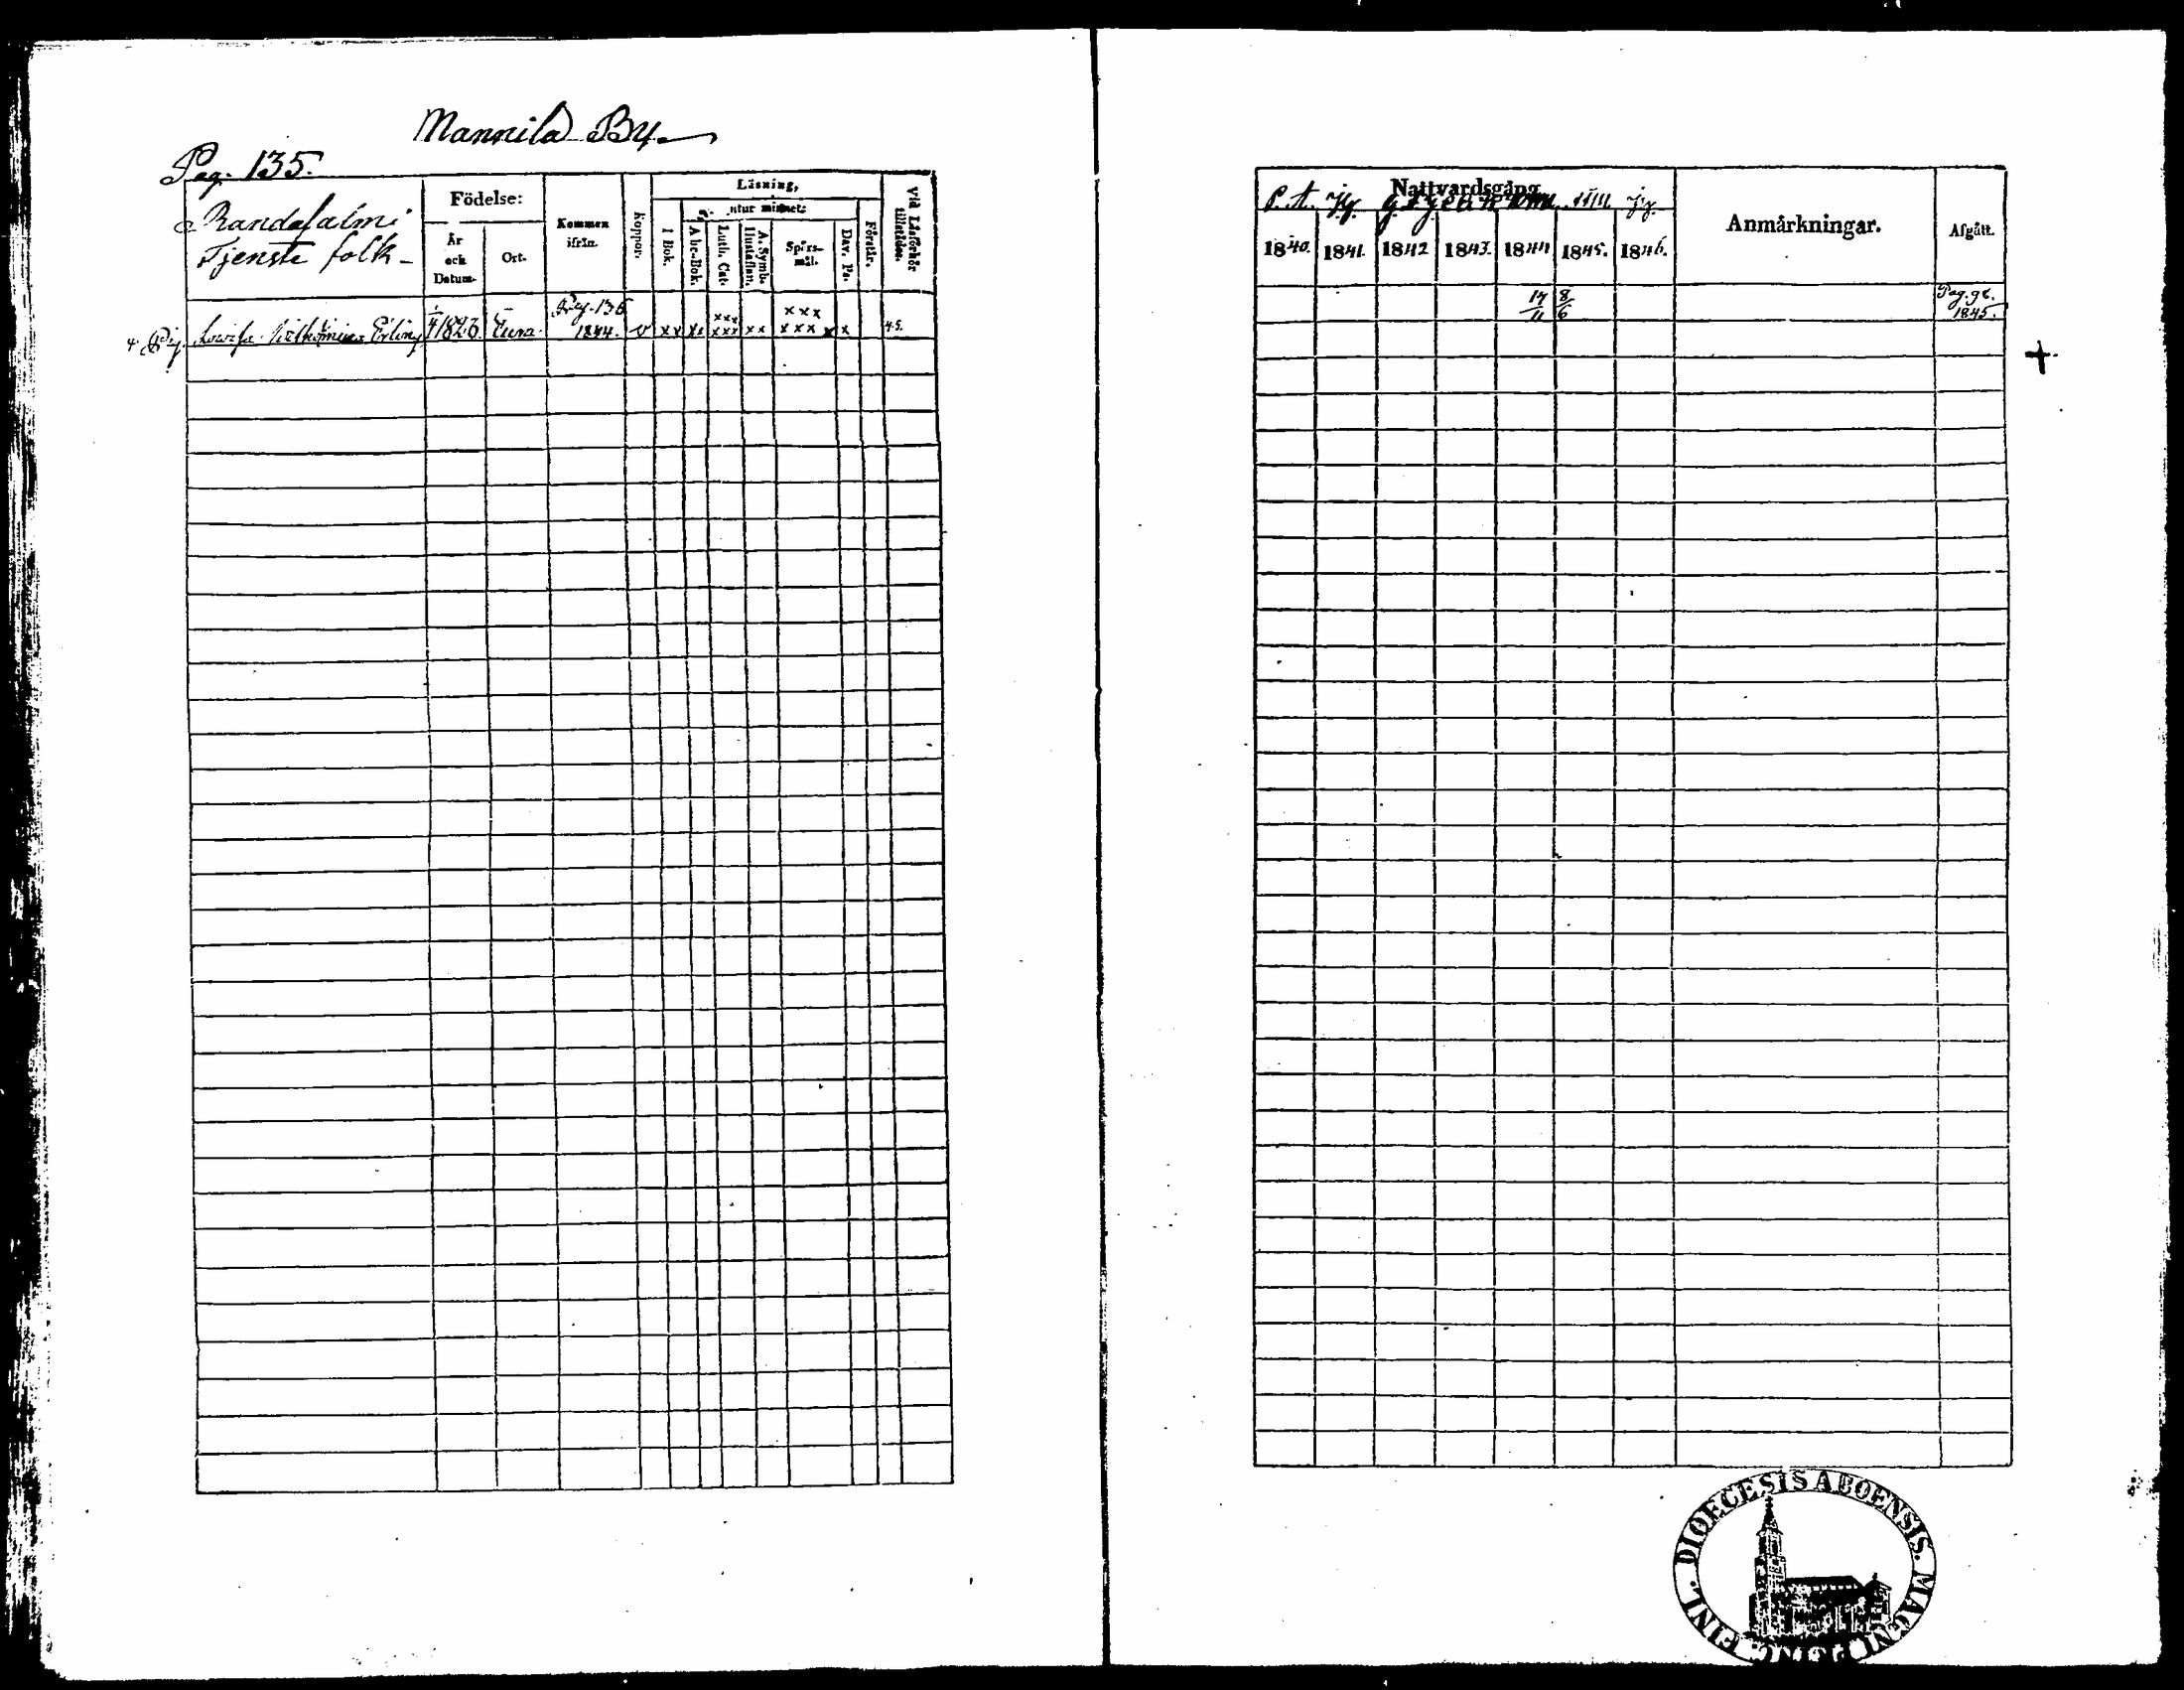 Mannila By.
Pag. 135.
Randasalmi
Tjenste folk-
Födelse:
År
och
Datum.
Ort.
Kommen
ifrån.
Koppor.
Läsning,
utur minnet:
I Bok.
Abc-Bok.
Luth. Cat.
A. Symb.
Hustaflan.
Spörs-
mål.
Dav. Ps.
Förstår.
Vid Läsförhör
tillstädes.
Pig. Lovisa 1823. Eura. Pag. 136
1844. v xx xx xxx xxx xx xxx xxx x x 45.
Nattvardsgång
1840. 1841. 1842 1843. 1844 1845. 1846.
Anmärkningar.
Afgått.
17/11 8/6
Pag. 98.
1845.
+
DIOECESIS ABOENSIS. MAGNI PRINC. FINL.